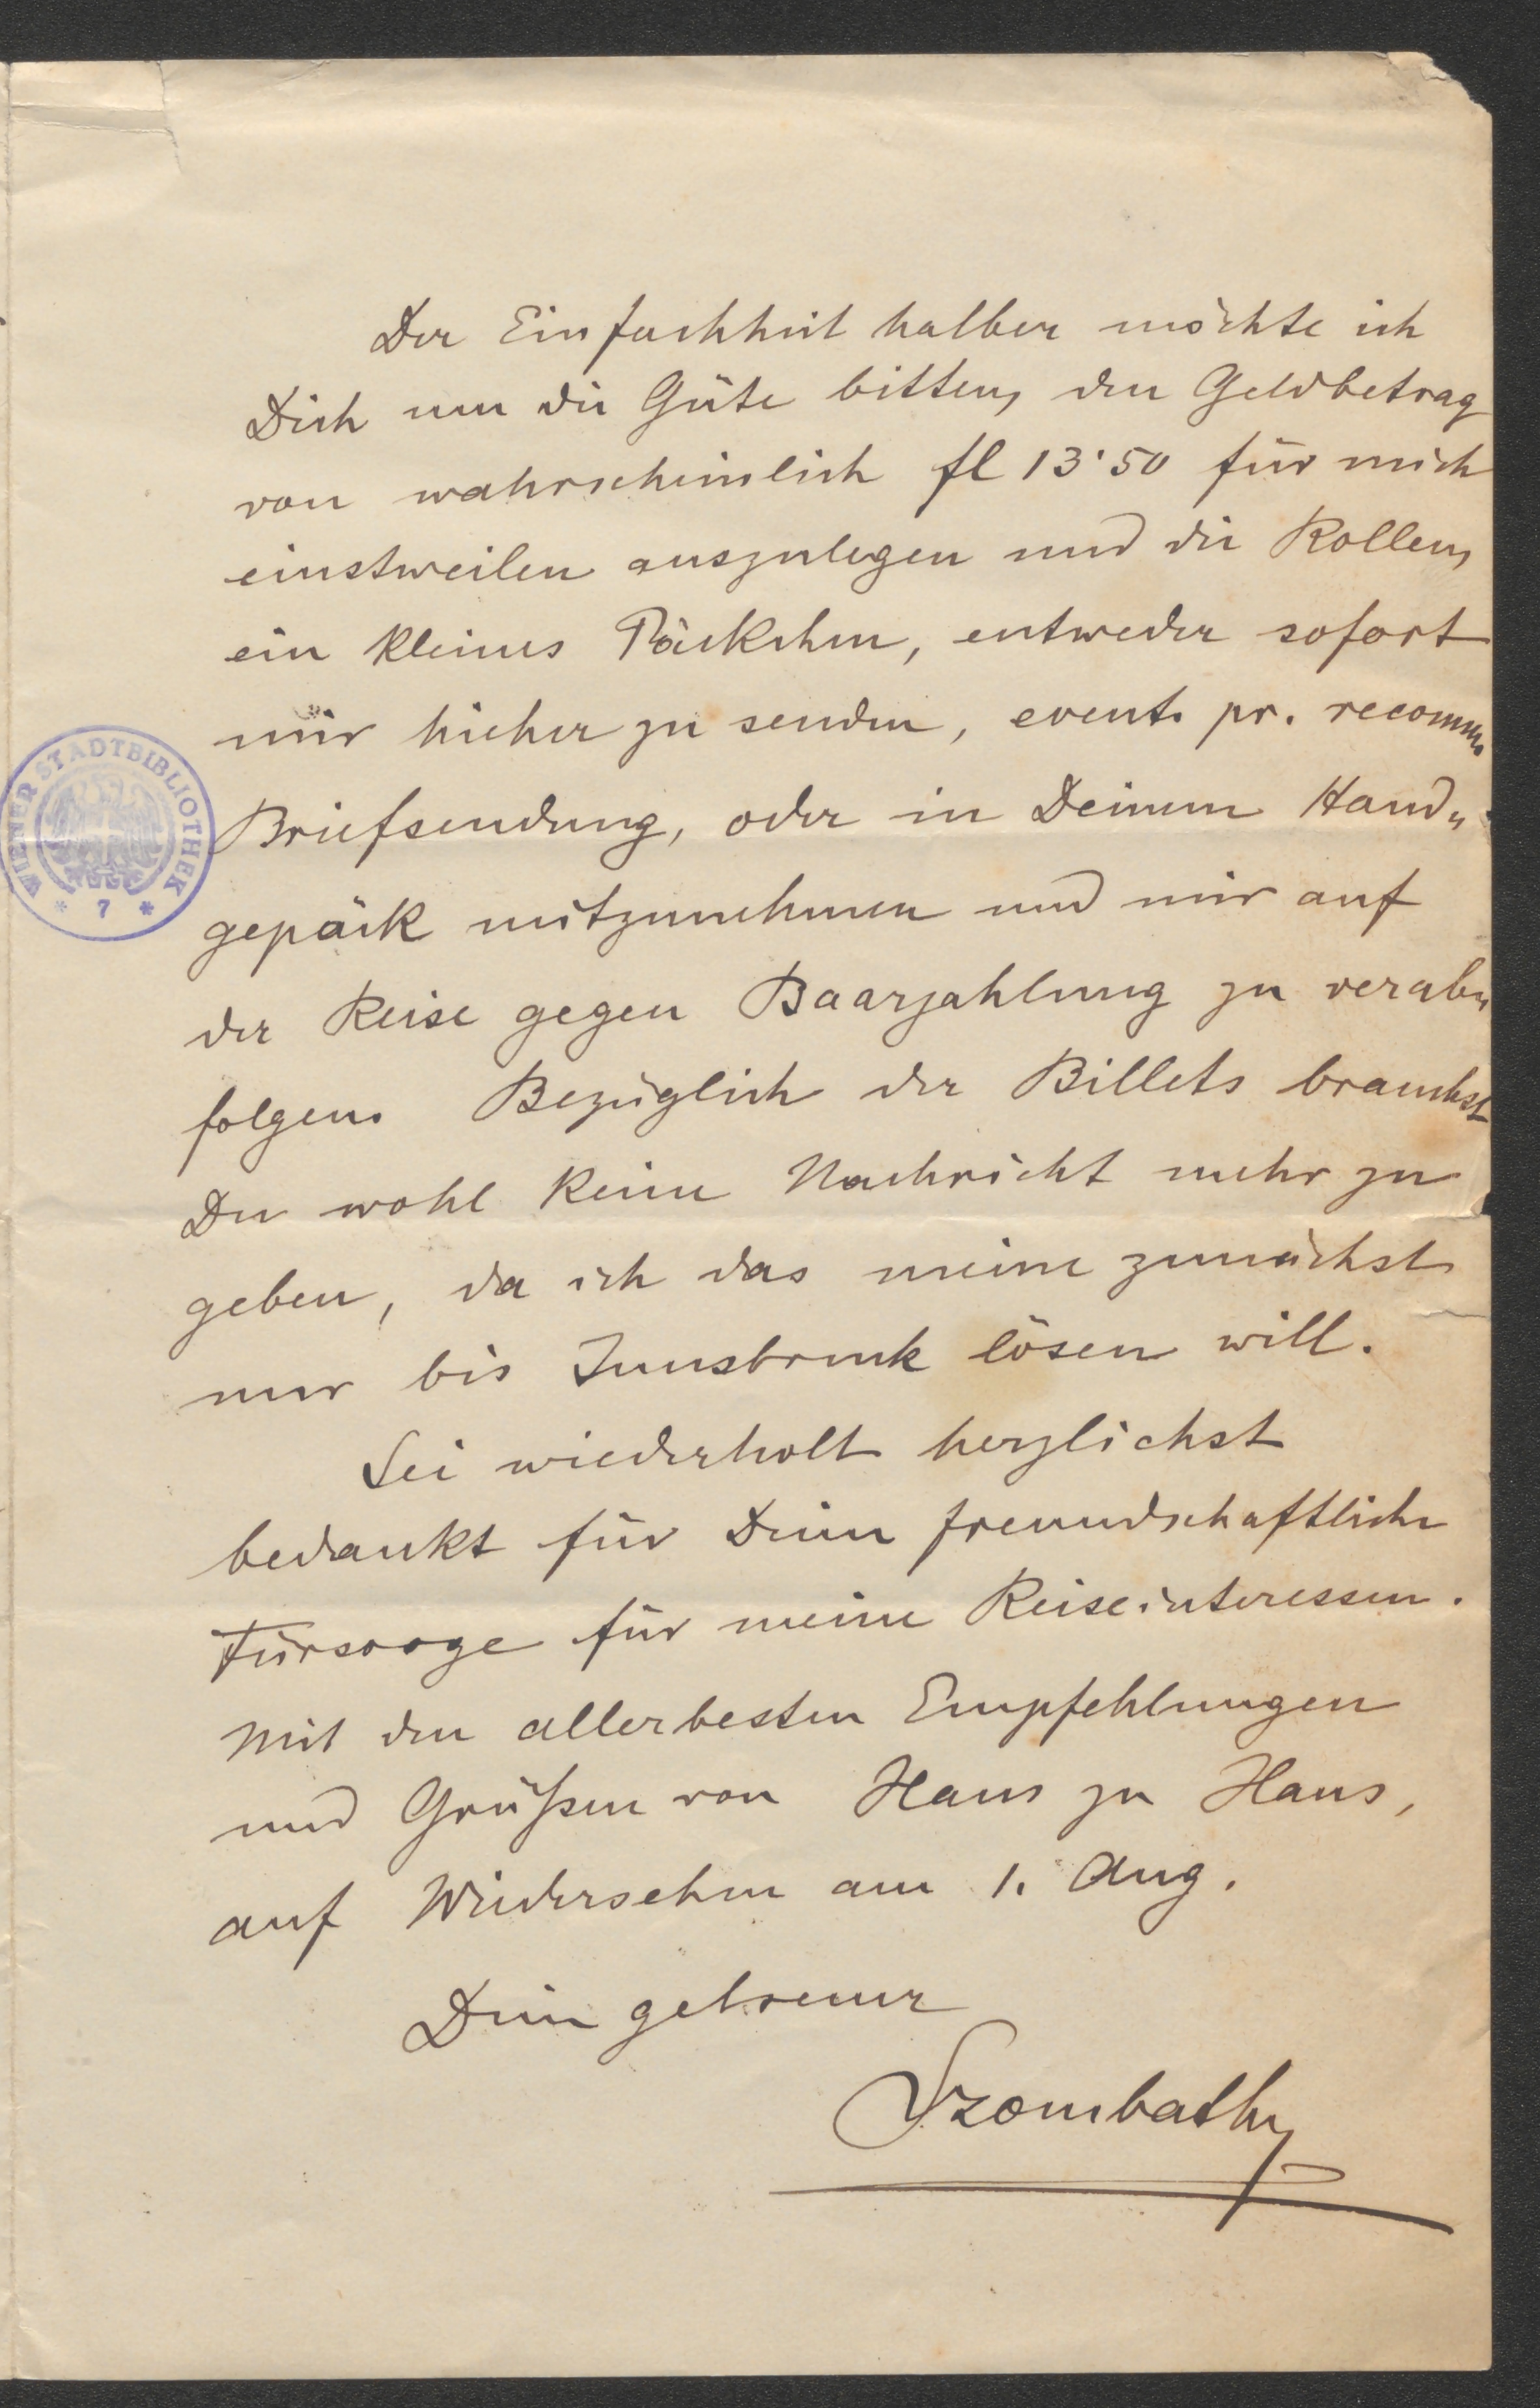 Der Einfachheit halber möchte ich
Dich um die Güte bitten, den Geldbetrag
von wahrscheinlich fl 13·50 für mich
einstweilen auszulegen und die Rollen,
ein kleines Päckchen, entweder sofort
mir hieher zu senden, event. pr. recomm.
Briefsendung, oder in Deinem Hand„
gepäck mitzunehmen und mir auf
der Reise gegen Baarzahlung zu verab„
folgen. Bezüglich der Billets brauchst
Du wohl keine Nachricht mehr zu
geben, da ich das meine zunächst
nur bis Innsbruck lösen will.
Sei wiederholt herzlichst
bedankt für Deine freundschaftliche
Fürsorge für meine Reiseinteressen.
Mit den allerbesten Empfehlungen
und Grüßen von Haus zu Haus,
auf Wiedersehen am 1. Aug.
Dein getreuer
Szombathy
WIENER STADTBIBLIOTHEK
* 7 *